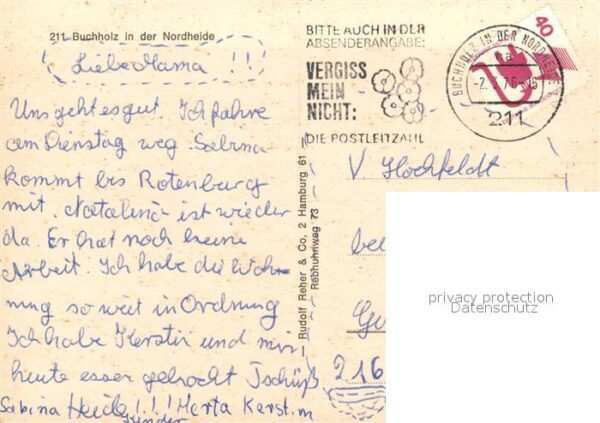 211 Buchholz in der Nordheide
Liebe Mama !!
Uns geht es gut. Ich fahre
am Dienstag weg. Sabina
kommt bis Rotenburg
mit. ist wieder
da. Er hat noch keine
Arbeit. Ich habe die Woh-
nung so weit in Ordnung
Ich habe Kerstin und mir
heute esser gekocht Tschüß
Sabina Heide!!! Merta Kerst.n
— Rudolf Reher & Co, 2 Hamburg 61
Rebhuhnweg 73
BITTE AUCH IN DER
ABSENDERANGABE:
VERGISS
MEIN
NICHT:
DIE POSTLEITZAHL
BUCHHOLZ IN DER NORDHEIDE
211
40
V Hochfeldt
216
privacy protection
Datenschutz